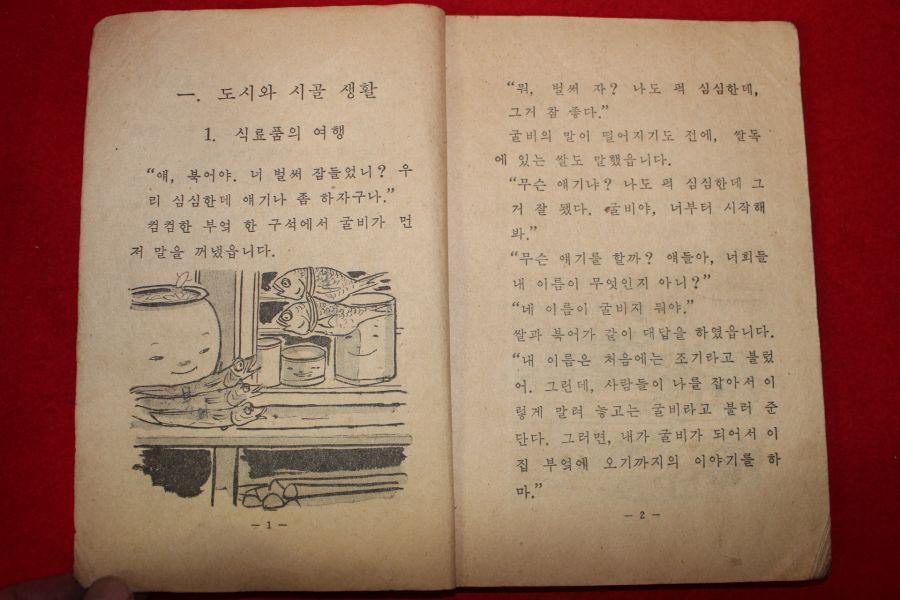 一. 도시와 시골 생활
1. 식료품의 여행
“얘, 북어야. 너 벌써 잠들었니? 우
리 심심한데 얘기나 좀 하자구나.”
컴컴한 부엌 한 구석에서 굴비가 먼
저 말을 꺼냈읍니다.
— 1 —
“뭐, 벌써 자? 나도 퍽 심심한데,
그거 참 좋다.”
굴비의 말이 떨어지기도 전에, 쌀독
에 있는 쌀도 말했읍니다.
“무슨 얘기냐? 나도 퍽 심심한데 그
거 잘 됐다. 굴비야, 너부터 시작해
봐.”
“무슨 얘기를 할까? 얘들아, 너희들
내 이름이 무엇인지 아니?”
“네 이름이 굴비지 뭐야.”
쌀과 북어가 같이 대답을 하였읍니다.
“내 이름은 처음에는 조기라고 불렀
어. 그런데, 사람들이 나를 잡아서 이
렇게 말려 놓고는 굴비라고 불러 준
단다. 그러면, 내가 굴비가 되어서 이
집 부엌에 오기까지의 이야기를 하
마.”
— 2 —